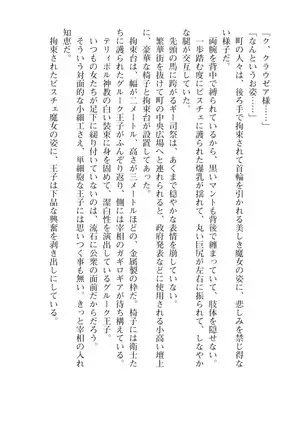 「ク、クラウゼア様……」
「なんというお姿……」
　町の人々は、後ろ手で拘束されて首輪を引かれる美しき魔女の姿に、悲しみを禁じ得な
い様子だ。
　両腕を背中で縛られているから、黒いマントも背後で纏まっていて、肢体を隠せない。
　一歩踏む度にビスチェに護られた爆乳が揺れて、丸い巨尻が左右に振られて、しなやか
な腿が交互していた。
　先頭の馬に跨がるギー司祭は、あくまで穏やかな表情を崩していない。
　繁華街を抜けて町の中央広場へと連れられると、政府発表などに使用される小高い壇上
に、豪華な椅子と拘束台が設置してあった。
　拘束台は、幅が二メートル、高さが三メートルほどの、金属製の枠だ。椅子には衛士た
ちに護られたグルーク王子がふんぞり返り、側には宰相のガギロギアが待ち構えている。
　テリィボル神教の白い装束に身を固めて、潔白性を演出しているグルーク王子。
　いつもの女たちが足下に縋り付いていないのは、流石に公衆の面前だからだろう。
　そういう対面的な小細工さえ、単細胞な王子には思いつく事も無い。きっと宰相の入れ
知恵だ。
　拘束されたビスチェ魔女の姿に、王子は下品な興奮を剥き出しにしている。